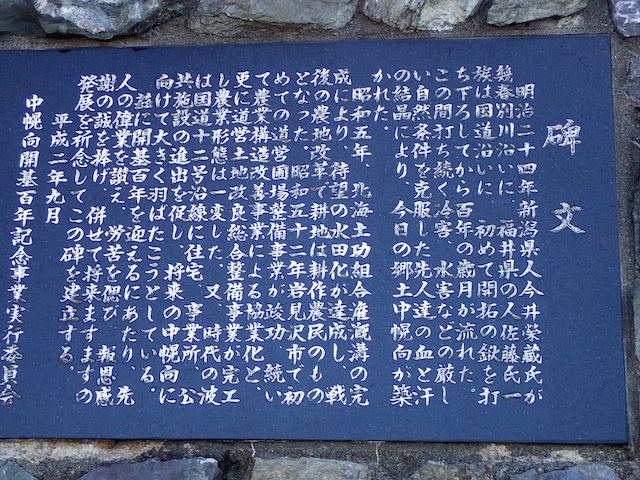 碑文
明治二十四年新潟県人今井榮藏氏が
幾春別川沿いに、福井県の人佐藤氏一
族は国道沿いに、初めて開拓の鍬を打
ち下ろしてから百年の歳月が流れた。
この間打ち続く冷害、水害などの厳し
い自然条件を克服した先人達の血と汗
の結晶により、今日の郷土中幌向が築
かれた。
昭和五年、北海土功組合灌漑溝の完
成により、待望の水田化が達成し、戦
後の農地改革で耕地は耕作農民のもの
となった。昭和五十二年岩見沢市で初
めての道営圃場整備事業が竣功、続い
て農業構造改善事業による協業化と、
更に道営土地改良総合整備事業が完工
し農業形態は一変した。又、時代の波
は国道十二号沿線に住宅、事業所、公
共施設の進出を促し、将来の中幌向に
向けて大きく羽ばたこうとしている。
茲に開基百年を迎えるにあたり、先
人の偉業を讃え、労苦を偲び、報恩感
謝の誠を捧げ、併せて将来ますますの
発展を祈念してこの碑を建立する。
平成二年九月
中幌向開基百年記念事業実行委員会